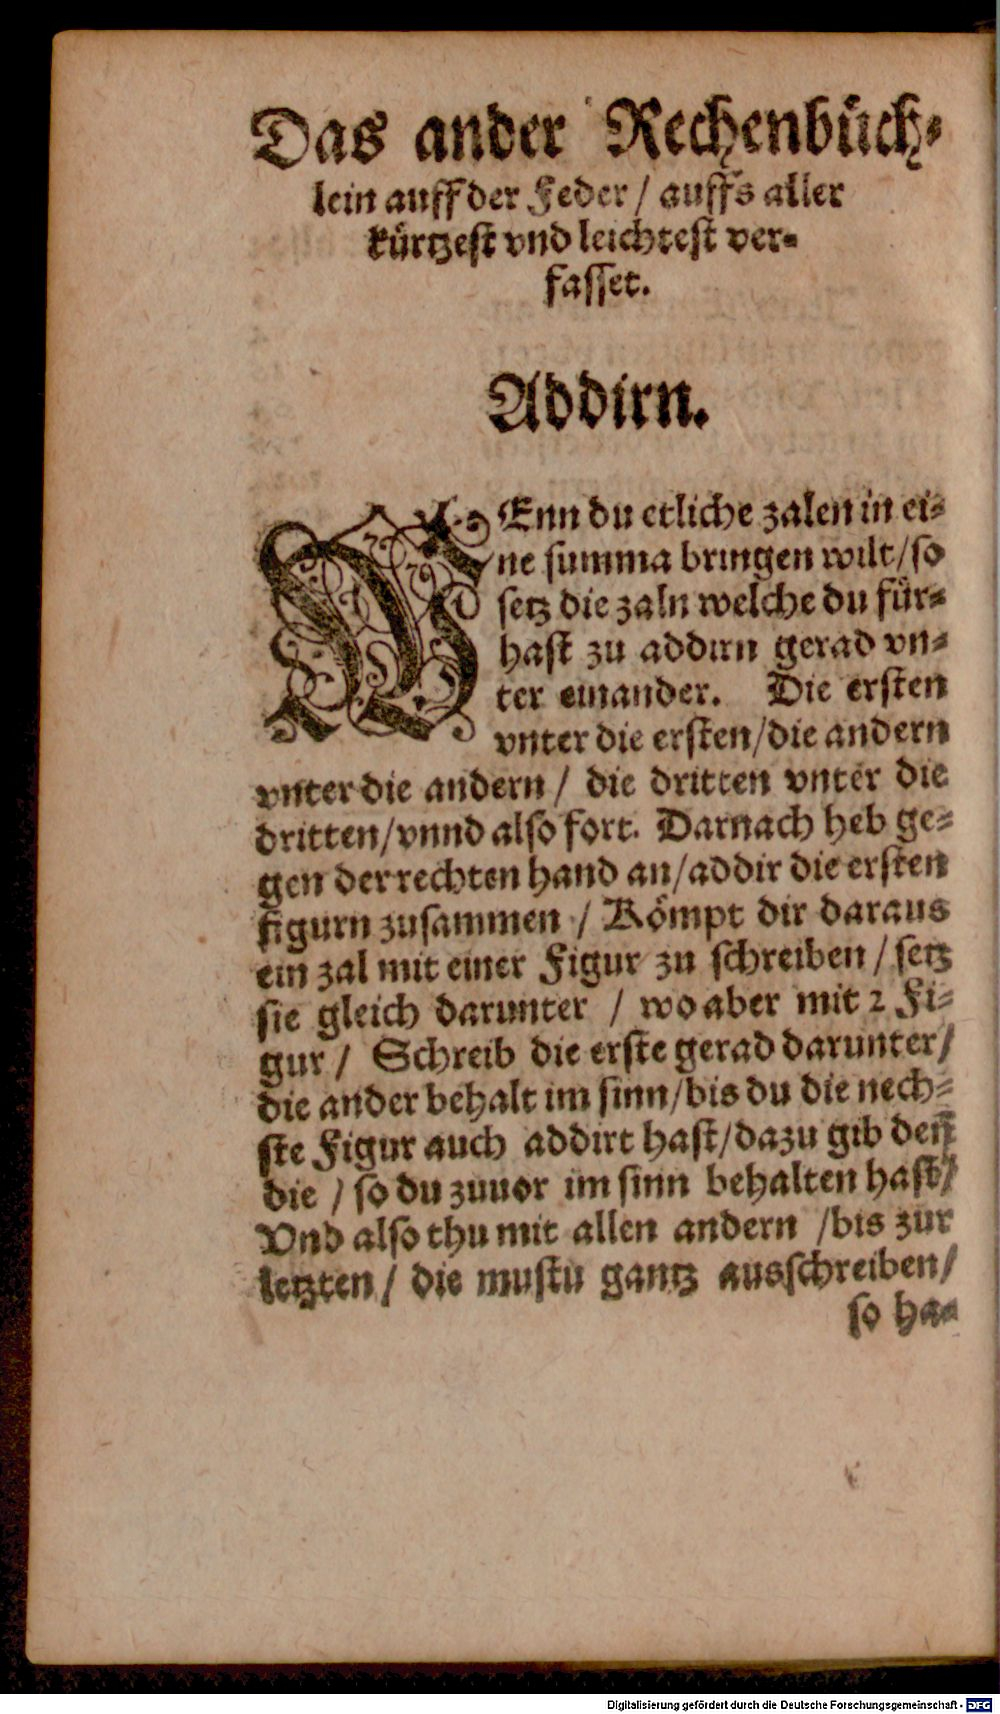 Das ander Rechenbüch-
lein auff der Feder / auffs aller
kürtzest vnd leichtest ver-
fasset.
Addirn.
WEnn du etliche zalen in ei-
ne summa bringen wilt/so
setz die zaln welche du für-
hast zu addirn gerad vn-
ter einander. Die ersten
vnter die ersten/die andern
vnter die andern / die dritten vnter die
dritten/vnnd also fort. Darnach heb ge-
gen der rechten hand an/addir die ersten
figurn zusammen / Kömpt dir daraus
ein zal mit einer Figur zu schreiben / setz
sie gleich darunter / wo aber mit 2 Fi-
gur / Schreib die erste gerad darunter/
die ander behalt im sinn/bis du die nech-
ste Figur auch addirt hast/dazu gib deñ
die / so du zuuor im sinn behalten hast/
Vnd also thu mit allen andern /bis zur
letzten / die mustu gantz ausschreiben/
so ha-
Digitalisierung gefördert durch die Deutsche Forschungsgemeinschaft - DFG